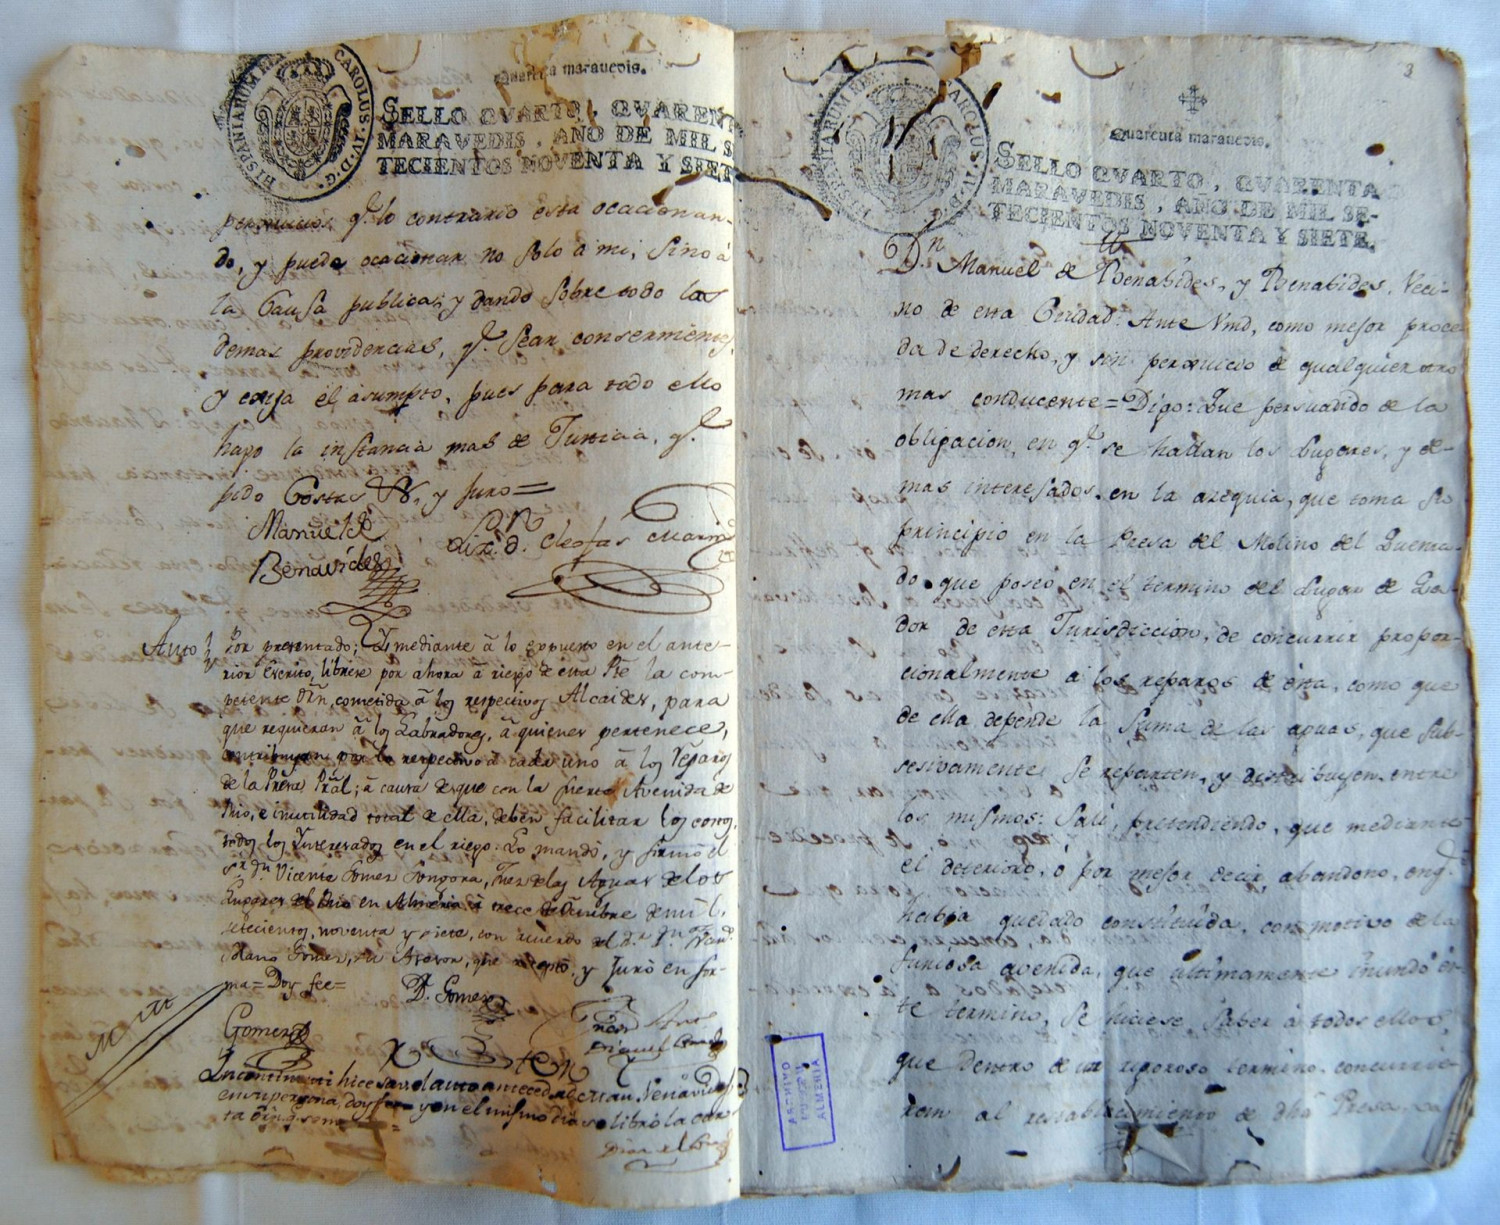 HISPANIARUM REX CAROLUS IV D G
Quarenta maravedis.
SELLO QVARTO, QVARENT
MARAVEDIS, AÑO DE MIL S
TECIENTOS NOVENTA Y SIET
perxuicios q.e lo contrario esta ocacionan-
do, y puede ocacionar no solo à mi, sino à
la Causa publica, y dando sobre todo las
demas providencias, q.e sean conserniente
y exija el asumpto, pues para todo ello
hago la instancia mas de Justicia, q.e
pido Costas &, y juro=
Manuel de
Benavides
Liz.do d. Cleofas Marin
Auto
Por presentado; Y mediante à lo expuesto en el ante-
rior Escrito, librese por ahora à riego de esta Pte la com-
petente Orn, cometida à los respectivos Alcaldes, para
que requieran à los Labradores, à quienes pertenece,
contribuyan por lo respectivo à cada uno à los reparos
de la Presa Pral; à causa de que con la fuerte Avenida de
Rio, è inutilidad total de ella, deben facilitar los costos,
todos los Ynteresados en el riego: Lo mandò, y firmò el
S.r d.n Vicente Gomez Gongora, Juez de las Aguas de los
Lugares del Rio en Almeria à trece de
setecientos, noventa y siete, con acuerdo del
Gomez, su Asesor, que acepto, y Jurò en for-
ma= Doy fee=
D. Gomez
Gomez
Incontinenti hice saver el auto antecedente
en su persona, doy fee= y en el mismo dia se libró la
3
Quarenta maravedis.
SELLO QVARTO, QVARENTA
MARAVEDIS, AÑO DE MIL SE-
TECIENTOS NOVENTA Y SIETE.
D.n Manuel de Venabides, y Venabides, Veci-
no de esta Ciudad: Ante Vmd, como mejor proce-
da de derecho, y sin perxuicio de qualquier otro
mas conducente= Digo: Que persuadido de la
obligacion, en q.e se hallan los Lugares, y de-
mas interesados en la azequia, que toma su
principio en la Presa del Molino del Quema-
do que poseo en el termino del Lugar de Ga-
dor de esta Jurisdiccion, de concurrir propor-
cionalmente à los reparos de esta, como que
de ella depende la suma de las aguas, que sub-
sesivamente se reparten, y distribuyen entre
los mismos: Sali, pretendiendo, que mediante
el deterioro, ò por mejor decir, abandono, en q.e
habia quedado constituida, con motivo de la
furiosa avenida, que ultimamente inundó es-
te termino, se hiciese saber à todos ellos,
que dentro de un riguroso termino concurrie-
ran al restablecimiento de dha Presa,
ARCHIVO
ALMERIA